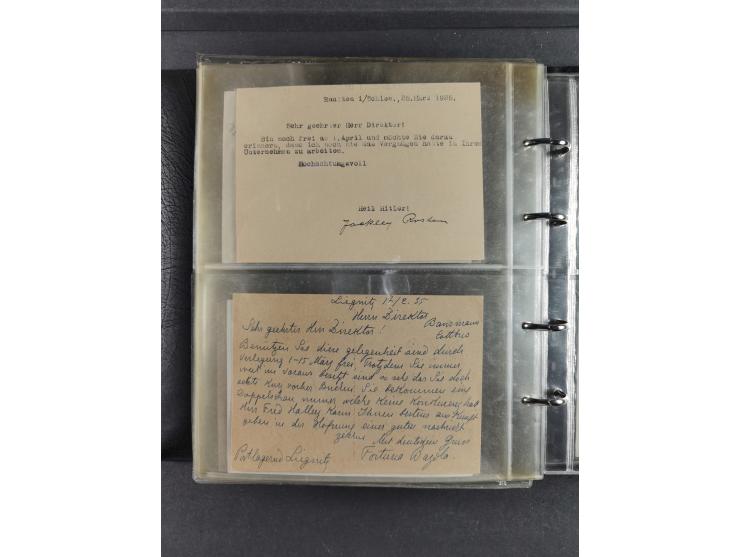 Bautzen i/Schles., 25.März 1935.
Sehr geehrter Herr Direktor!
Bin noch frei ab 1.April und möchte Sie daran
erinnern, dass ich noch nie das Vergnügen hatte in Ihrem
Unternehmen zu arbeiten.
Hochachtungsvoll
Heil Hitler!
Liegnitz 17/2. 35
Herrn Direktor
Sehr geehrter Herr Direktor!
Cottbus
Benutzen Sie diese gelegenheit sind durch
Verlegung 1-15 März frei, Trotzdem Sie immer
weit im voraus besetzt sind so sehe das Sie doch
kurz vorher Sie bekommen eine
nummer welche keine Konkurenz hat
Herr Fred Halley kann Ihnen bestens auskunft
geben in der Hofnung einer guten nachricht
Mit deutschem Gruss
Postlagernd Liegnitz
Fortuna